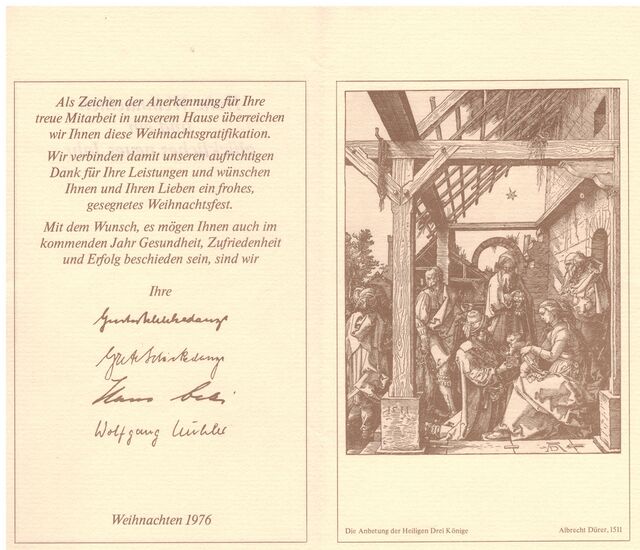 Als Zeichen der Anerkennung für Ihre
treue Mitarbeit in unserem Hause überreichen
wir Ihnen diese Weihnachtsgratifikation.
Wir verbinden damit unseren aufrichtigen
Dank für Ihre Leistungen und wünschen
Ihnen und Ihren Lieben ein frohes,
gesegnetes Weihnachtsfest.
Mit dem Wunsch, es mögen Ihnen auch im
kommenden Jahr Gesundheit, Zufriedenheit
und Erfolg beschieden sein, sind wir
Ihre
Grete Schickedanz
Hans
Wolfgang Bühler
Weihnachten 1976
1511
Die Anbetung der Heiligen Drei Könige
Albrecht Dürer, 1511